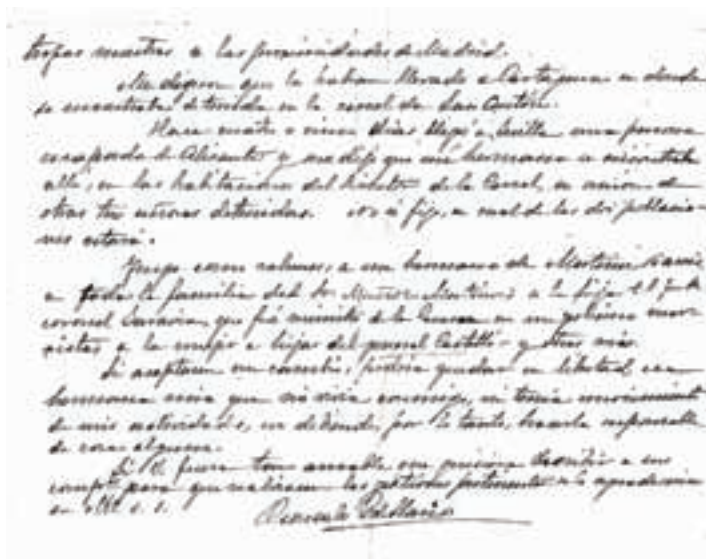 tropas nuestras a las proximidades de Madrid.
Me dijeron que la habían llevado a Cartagena en donde
se encontraba detenida en la carcel de San Antón.
Hace cuatro o cinco días llegó a Sevilla una persona
escapada de Alicante y me dijo que mi hermana se encontraba
allí, en las habitaciones del de la Carcel, en union de
otras tres señoras detenidas. No sé fijo, en cual de las dos poblacio-
nes estará.
Tengo como rehenes, a un hermano de Martinez Barrio
a toda la familia del Sr. Muñoz Martinez a la hija del
coronel Saravia, que fué ministro de la Guerra en un gobierno marx-
istas, a la mujer e hijas del general Castelló y otros más.
Si aceptasen un cambio, podría quedar en libertad esa
hermana mia que ni vivia conmigo, ni tenia conocimiento
de mis actividades, no debiendo, por lo tanto, hacerla responsable
de cosa alguna.
Si V. fuera tan amable, que quisiera a sus
para que realicen las gestiones se lo agradeceria
en s. s.